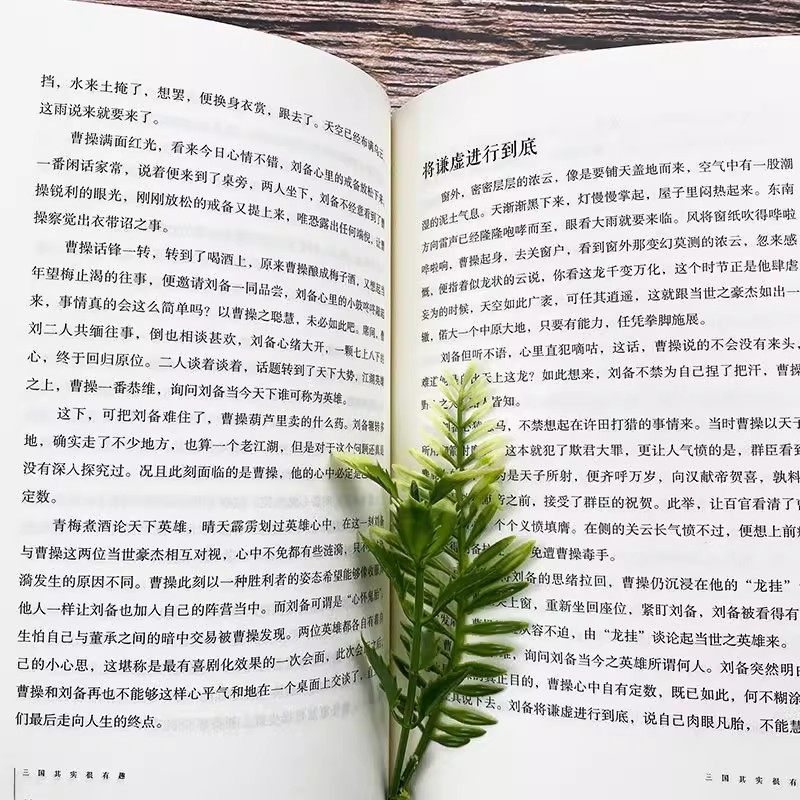 挡，水来土掩了，想罢，便换身衣赏，跟去了。天空已经布满乌云，
这雨说来就要来了。
曹操满面红光，看来今日心情不错，刘备心里的戒备放松下来，
一番闲话家常，说着便来到了桌旁，两人坐下，刘备不经意看到了曹
操锐利的眼光，刚刚放松的戒备又提上来，唯恐露出任何端倪，让曹
操察觉出衣带诏之事。
曹操话锋一转，转到了喝酒上，原来曹操酿成梅子酒，又想起当
年望梅止渴的往事，便邀请刘备一同品尝，刘备心里的小鼓咚咚敲起
来，事情真的会这么简单吗？以曹操之聪慧，未必如此吧。席间，曹
刘二人共缅往事，倒也相谈甚欢，刘备心绪大开，一颗七上八下的
心，终于回归原位。二人谈着谈着，话题转到了天下大势，江湖英雄
之上，曹操一番恭维，询问刘备当今天下谁可称为英雄。
这下，可把刘备难住了，曹操葫芦里卖的什么药。刘备辗转多
地，确实走了不少地方，也算一个老江湖，但是对于这个问题还真是
没有深入探究过。况且此刻面临的是曹操，他的心中必定是
定数。
青梅煮酒论天下英雄，晴天霹雳划过英雄心中，在这一刻刘备
与曹操这两位当世豪杰相互对视，心中不免都有些涟漪，只
漪发生的原因不同。曹操此刻以一种胜利者的姿态希望能够像收服
他人一样让刘备也加入自己的阵营当中。而刘备可谓是“心怀鬼胎”
生怕自己与董承之间的暗中交易被曹操发现。两位英雄都各自有着自
己的小心思，这堪称是最有喜剧化效果的一次会面，此次会面之后，
曹操和刘备再也不能够这样心平气和地在一个桌面上交谈了，直
们最后走向人生的终点。
三国其实很有趣
将谦虚进行到底
窗外，密密层层的浓云，像是要铺天盖地而来，空气中有一股潮
湿的泥土气息。天渐渐黑下来，灯慢慢掌起，屋子里闷热起来。东南
方向雷声已经隆隆咆哮而至，眼看大雨就要来临。风将窗纸吹得哗啦
哗啦响，曹操起身，去关窗户，看到窗外那变幻莫测的浓云，忽来感
慨，便指着似龙状的云说，你看这龙千变万化，这个时节正是他肆虐
妄为的时候，天空如此广袤，可任其遨游，这就跟当世之豪杰如出一
辙，偌大一个中原大地，只要有能力，任凭拳脚施展。
刘备但听不语，心里直犯嘀咕，这话，曹操说的不会没有来头，
难道他比天上这龙？如此想来，刘备不禁为自己捏了把汗，曹操
野 之 人皆知。
马，不禁想起在许田打猎的事情来。当时曹操以天子
所 这本就犯了欺君大罪，更让人气愤的是，群臣看到
为是天子所射，便齐呼万岁，向汉献帝贺喜，孰料
帝之前，接受了群臣的祝贺。此举，让百官看清了曹
个个义愤填膺。在侧的关云长气愤不过，便想上前
免遭曹操毒手。
将刘备的思绪拉回，曹操仍沉浸在他的“龙挂”
关上窗，重新坐回座位，紧盯刘备，刘备被看得有
从容不迫，由“龙挂”谈论起当世之英雄来。
，询问刘备当今之英雄所谓何人。刘备突然明
真正目的，曹操心中自有定数，既已如此，何不糊涂
其说下去。刘备将谦虚进行到底，说自己肉眼凡胎，不能慧
三国其实很有